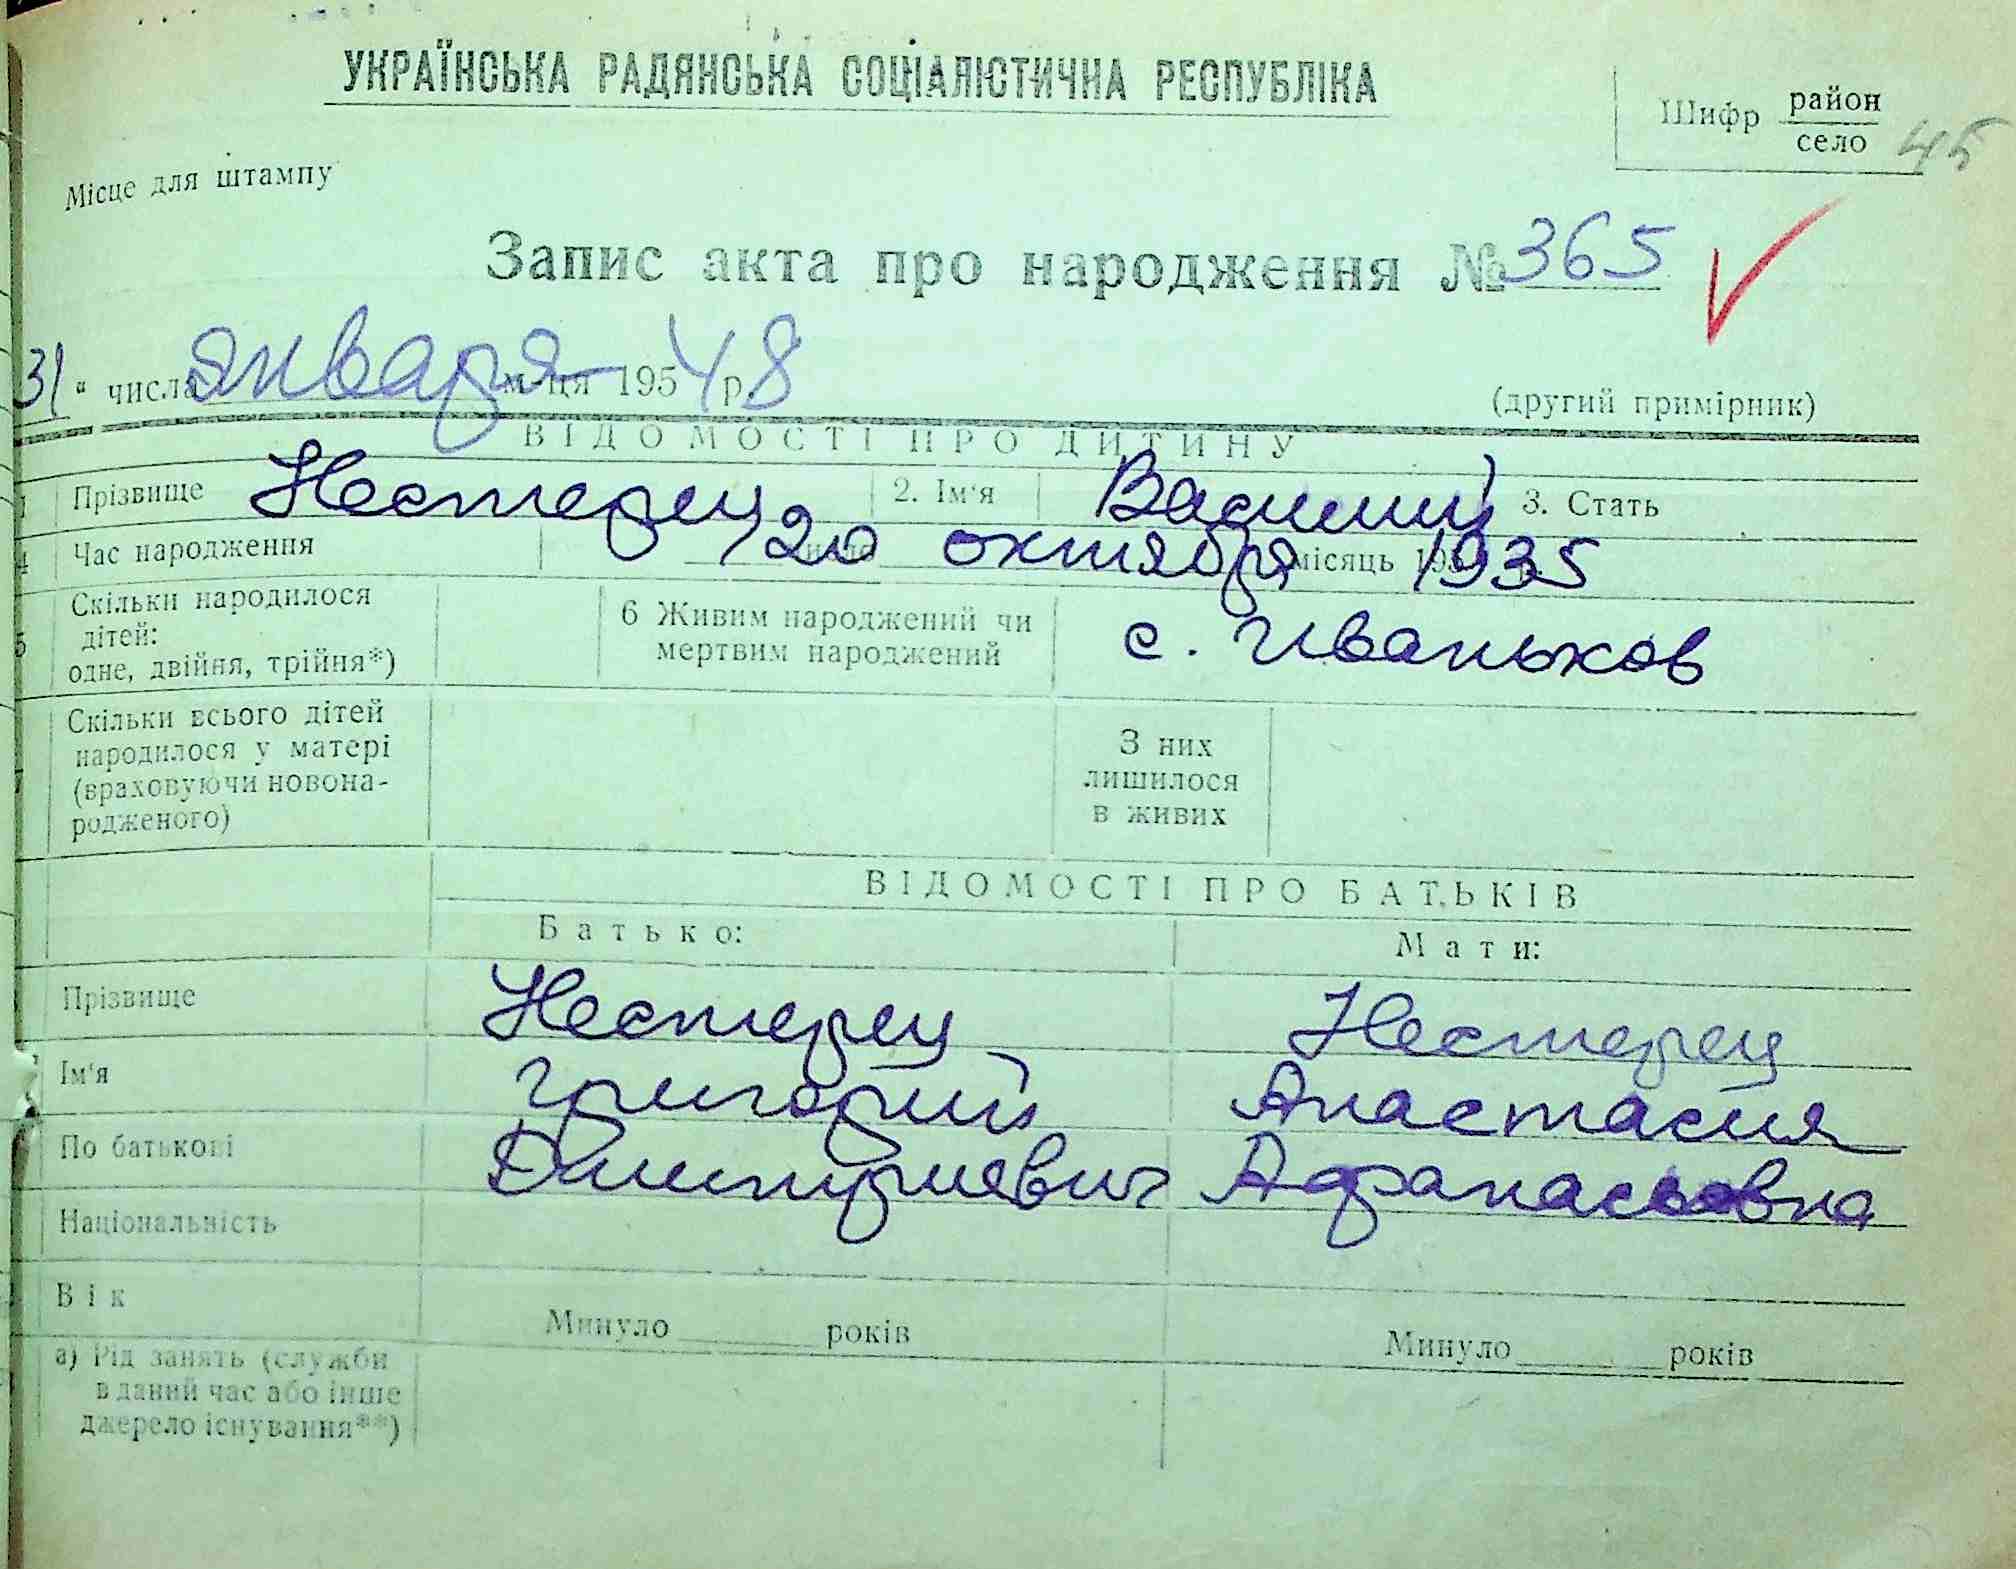 УКРАЇНСЬКА РАДЯНСЬКА СОЦІАЛІСТИЧНА РЕСПУБЛІКА
Шифр район
село 45
Місце для штампу
Запис акта про народження № 365
31 " числа января м-ця 195 48 р
(другий примірник)
ВІДОМОСТІ ПРО ДИТИНУ
1 Прізвище Нестерец 2. Ім'я Василий 3. Стать
4 Час народження 20 число октября місяць 1935
5 Скільки народилося дітей: одне, двійня, трійня*) 6 Живим народжений чи мертвим народжений с. Иваньков
7 Скільки всього дітей народилося у матері (враховуючи новонародженого) З них лишилося в живих
ВІДОМОСТІ ПРО БАТЬКІВ
Батько: Мати:
Прізвище Нестерец Нестерец
Ім'я Григорий Анастасия
По батькові Дмитриевич Афанасьовна
Національність
Вік Минуло ______ років Минуло ______ років
а) Рід занять (служби
в даний час або інше
джерело існування**)